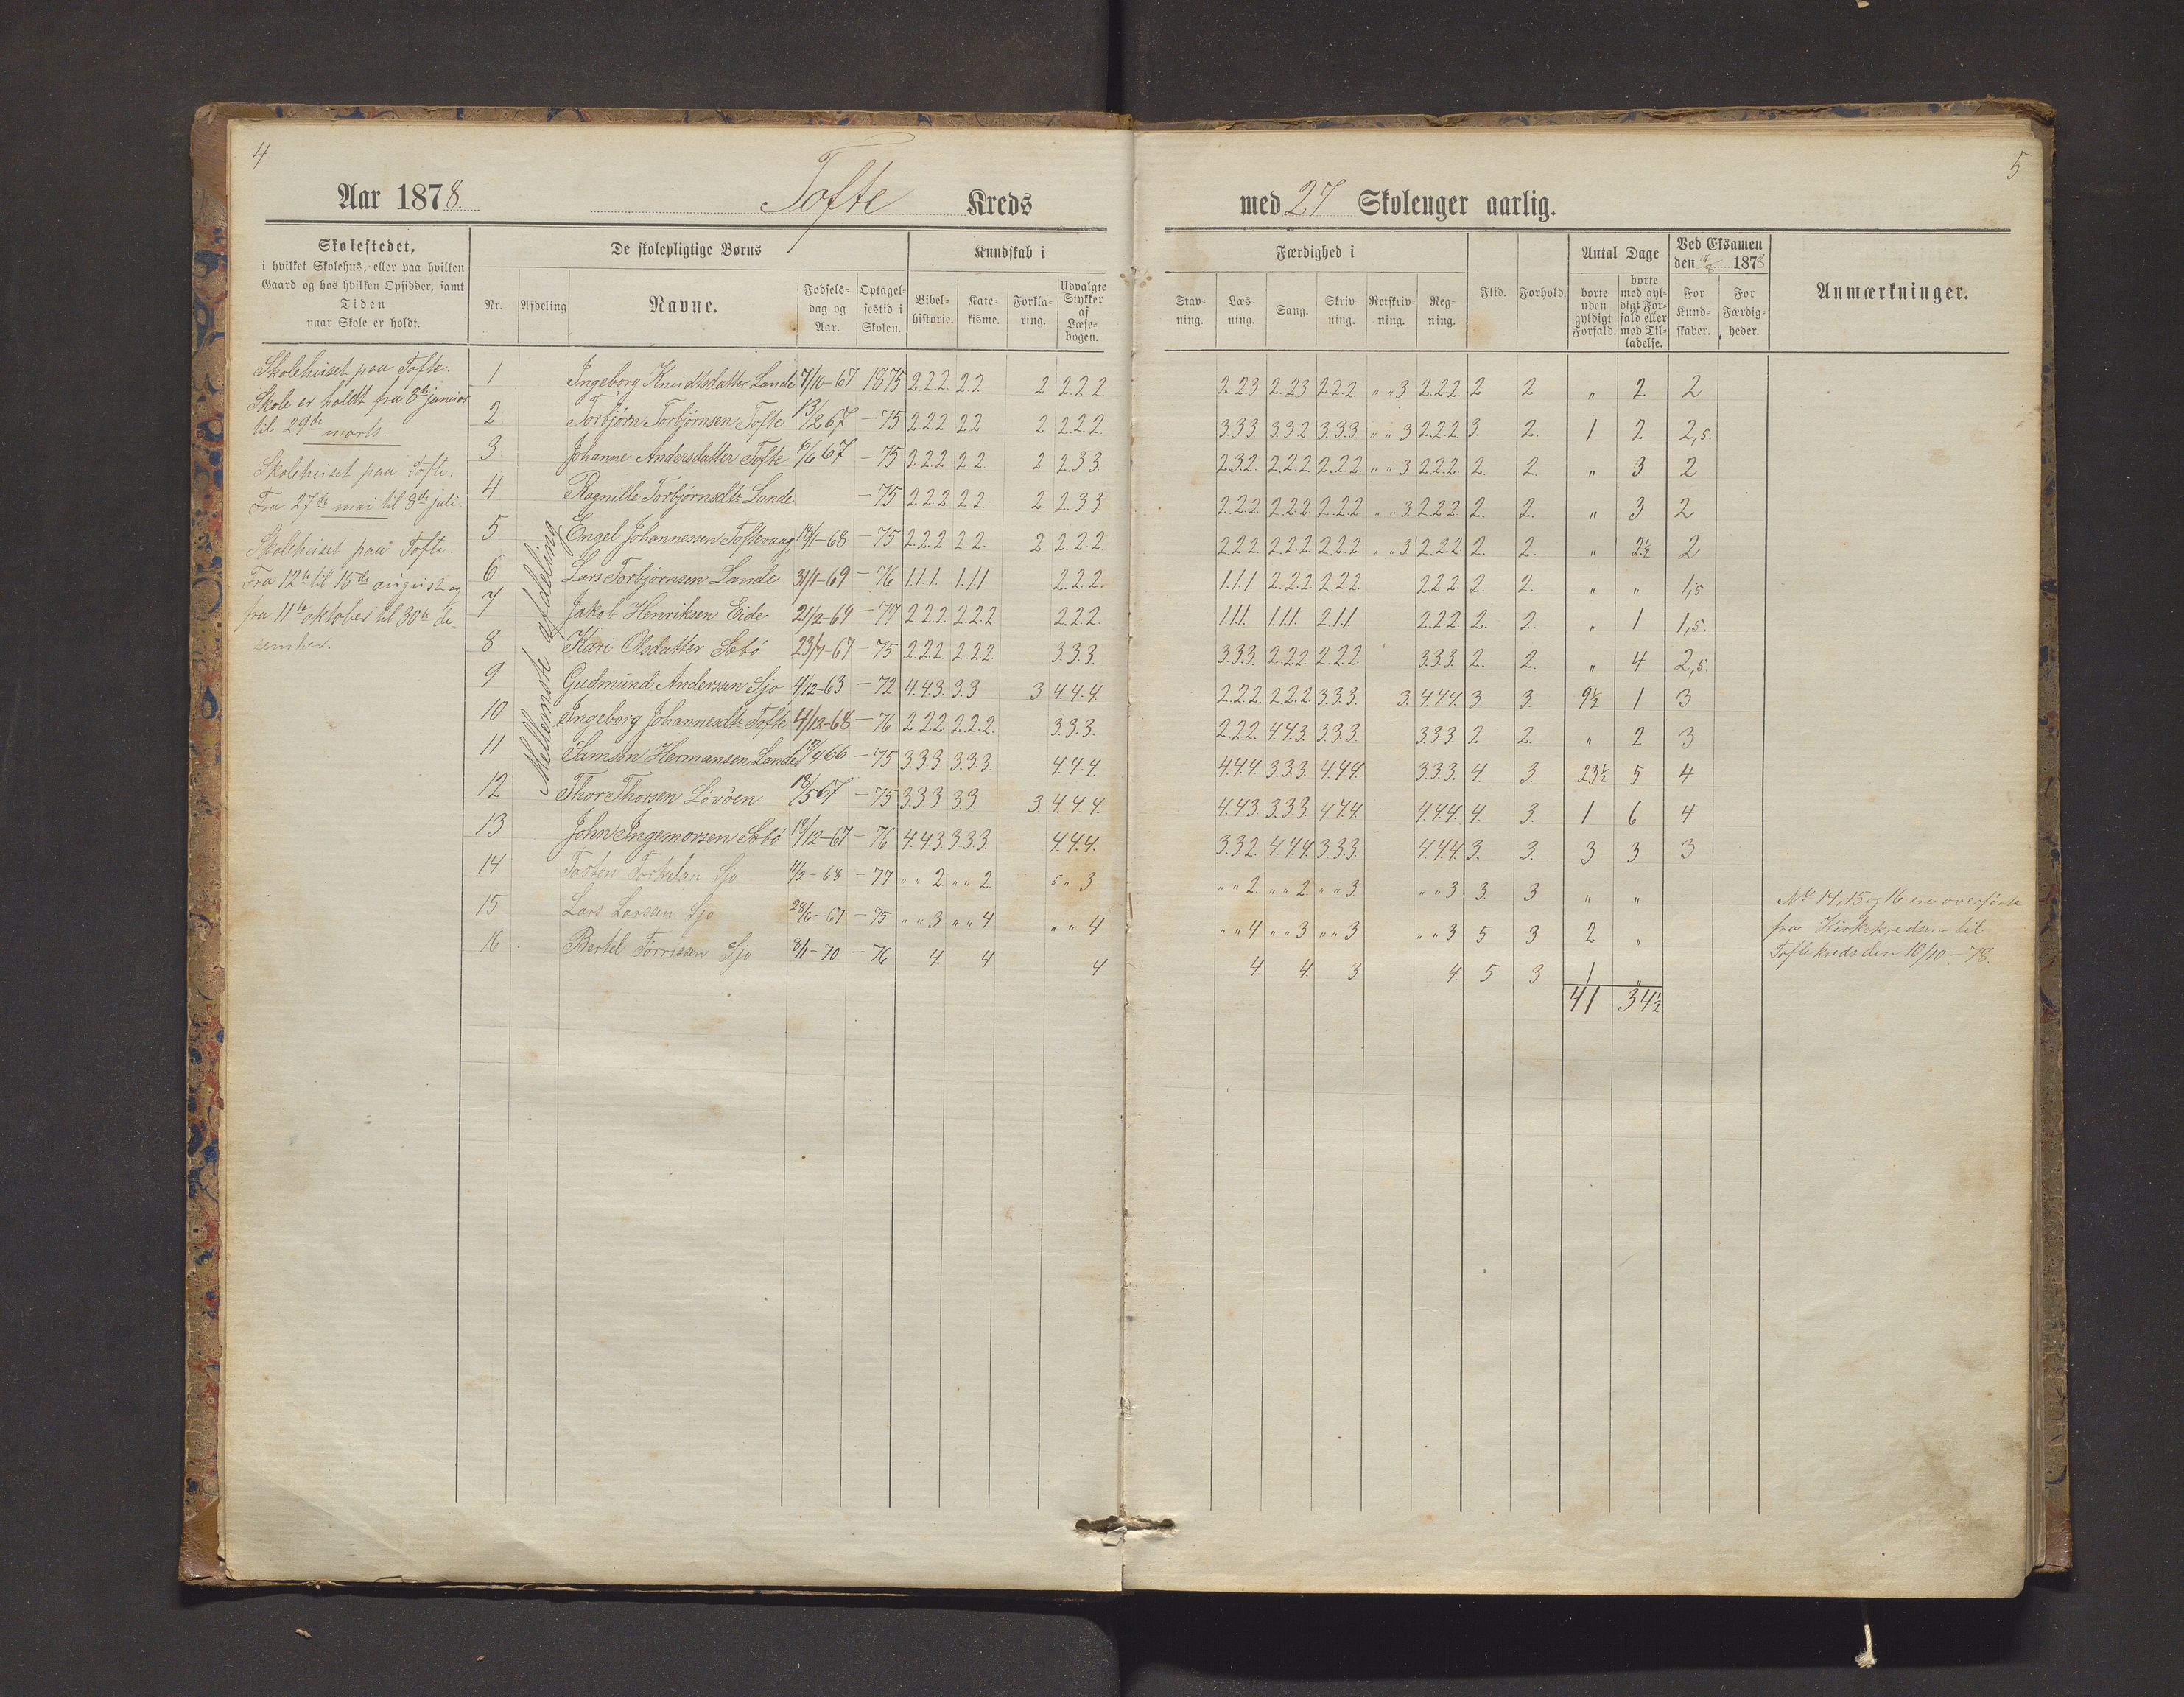 4
Aar 1878.
Tofte Kreds
Skolestedet,
i hvilket Skolehus, eller paa hvilken
Gaard og hos hvilken Opsidder, samt
Tiden
naar Skole er holdt.
De skolepligtige Børns
Kundskab i
Nr. Afdeling Navne. Fødsels-dag og Aar. Optagel-sestid i Skolen. Bibel-historie. Kate-kisme. Forkla-ring. Udvalgte Stykker af Læse-bogen.
Skolehuset paa Tofte.
Skole er holdt fra 8de januar
til 29de marts.
Skolehuset paa Tofte.
Fra 27de mai til 8de juli
Skolehuset paa Tofte.
Fra 12te til 15de august og
fra 11te oktober til 30te de-
sember.
Mellemste afdeling
1 Ingeborg Knudtsdatter Lande 7/10-67 1875 2.2.2. 2.2. 2 2.2.2
2 Torbjørn Torbjørnsen Tofte 13/2 67 -75 2.2.2 2.2 2 2.2.2.
3 Johanne Andersdatter Tofte 6/6 67 -75 2.2.2 2.2. 2 2.3.3.
4 Ragnille Torbjørnsdtr Lande -75 2.2.2 2.2. 2. 2.3.3
5 Engel Johannessen Toftevaag -68 -75 2.2.2 2.2. 2 2.2.2.
6 Lars Torbjørnsen Lande 31/1-69 -76 1.1.1. 1.1.1 2.2.2.
7 Jakob Henriksen Eide 21/2-69 -77 2.2.2. 2.2.2. 2.2.2.
8 Kari Olsdatter Sæbö 23/7-67 -75 2.2.2. 2.2.2. 3.3.3.
9 Gudmund Anderssen Sjo 4/12-63 -72 4.4.3. 3.3 3 4.4.4
10 Ingeborg Johannesdtr Tofte 4/12-68 -76 2.2.2 2.2.2. 3.3.3.
11 Samson Hermansen Lande /4 66 -75 3.3.3 3.3.3. 4.4.4.
12 Thor Thorsen Lövöen 18/5 67 -75 3.3.3. 3.3. 3 4.4.4.
13 John Ingemorsen Sæbö 18/12-67 -76 4.4.3. 3.3.3. 4.4.4.
14 Tosten Torkelsen Sjo 11/2-68 -77 " " 2. " " 2. " " 3
15 Lars Larssen Sjo 28/6-67 -75 " " 3 " " 4 " " 4
16. Bertel Tørrissen Sjo 8/1-70 -76 4. 4 4
5
med 27 Skoleuger aarlig.
Færdighed i
Stav-ning. Læs-ning. Sang. Skriv-ning. Retskriv-ning. Reg-ning. Flid. Forhold.
Antal Dage
borte uden gyldigt Forfald. borte med gyl-digt For-fald eller med Til-ladelse.
Ved Eksamen
den 1878
For Kund-skaber. For Færdig-heder.
Anmærkninger.
2.2.3 2.2.3 2.2.2 " " 3 2.2.2. 2 2 " 2 2
3.3.3. 3.3.2 3.3.3. " " 3 2.2.2. 3. 2. 1 2 2,5.
2.3.2. 2.2.2. 2.2.2. " " 3 2.2.2. 2. 2. " 3 2
2.2.2. 2.2.2. 2.2.2. " " 3. 2.2.2. 2. 2. " 3 2
2.2.2. 2.2.2. 2.2.2. " " 3 2.2.2. 2. 2. " 2½ 2
1.1.1 2.2.2. 2.2.2. 2.2.2. 2. 2. " " 1,5
1.1.1. 1.1.1. 2.1.1 2.2.2. 2. 2. " 1 1,5.
3.3.3. 2.2.2 2.2.2. 3.3.3. 2. 2. " 4 2,5.
2.2.2. 2.2.2 3.3.3. 3. 4.4.4. 3. 3. 9½ 1 3
2.2.2. 4.4.3. 3.3.3. 3.3.3. 2 2. " 2 3
4.4.4. 3.3.3. 4.4.4. 3.3.3. 4. 3. 23½ 5 4
4.4.3. 3.3.3. 4.4.4. 4.4.4. 4. 3. 1 6 4
3.3.2. 4.4.4. 3.3.3. 4.4.4. 3. 3. 3 3 3
" " 2. " " 2. " " 3 " " 3 3. 3 " "
" " 4 " " 3 " " 3 " " 3 5 3 2 "
4. 4. 3 4. 5 3 1 "
41 34½
No 14, 15 og 16 ere overførte
fra Kirkekredsen til
Tofte kreds den 10/10-78.